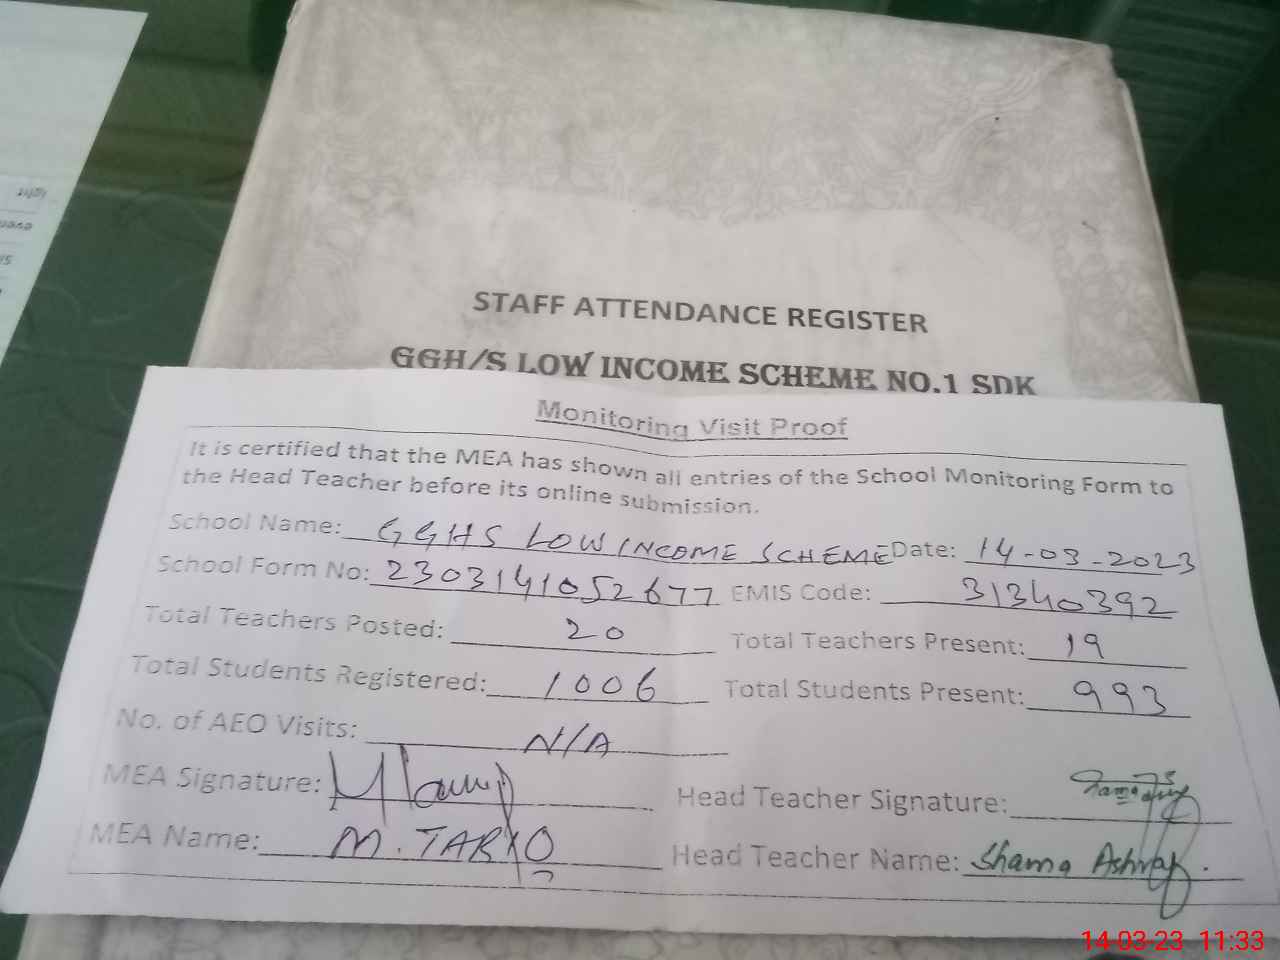 STAFF ATTENDANCE REGISTER
GGH/S LOW INCOME SCHEME NO.1 SDK
Monitoring Visit Proof
It is certified that the MEA has shown all entries of the School Monitoring Form to
the Head Teacher before its online submission.
School Name: GGHS LOW INCOME SCHEME Date: 14-03-2023
School Form No: 2303141052677 EMIS Code: 31340392
Total Teachers Posted: 20 Total Teachers Present: 19
Total Students Registered: 1006 Total Students Present: 993
No. of AEO Visits: N/A
MEA Signature: Head Teacher Signature:
MEA Name: M. TARIQ Head Teacher Name: Shama Ashraf.
14-03-23 11:33